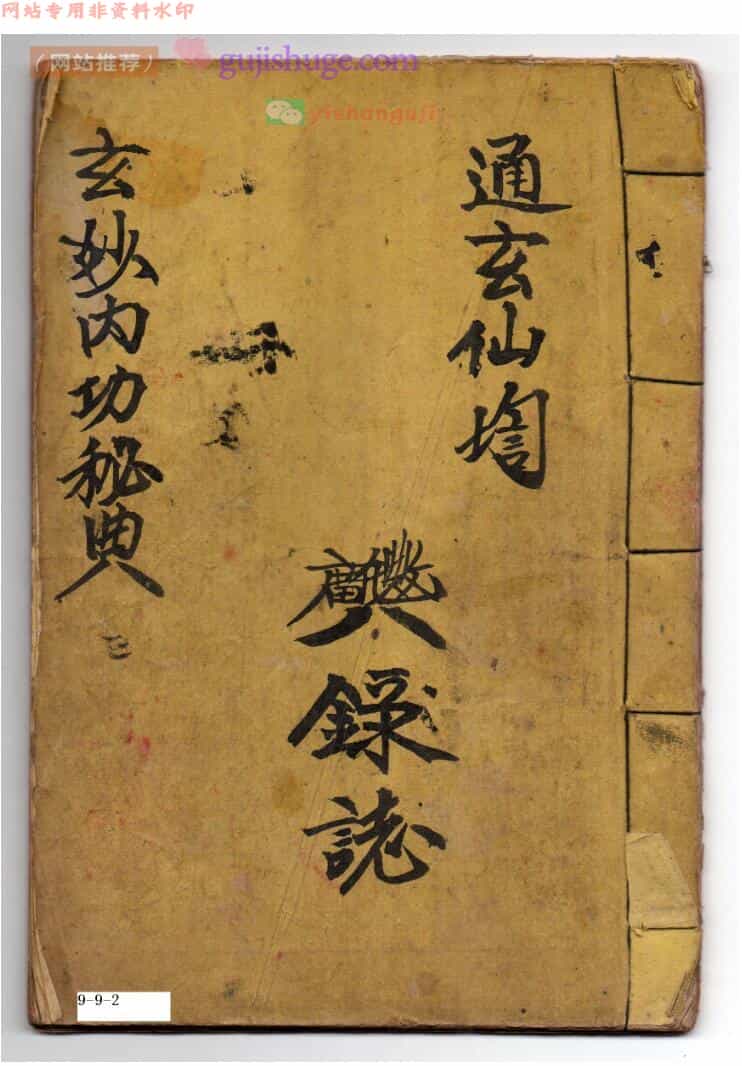 网站专用非资料水印
(网站推荐) gujishuge.com
yishanguji
通玄仙
錄誌
玄妙内功秘典
9-9-2